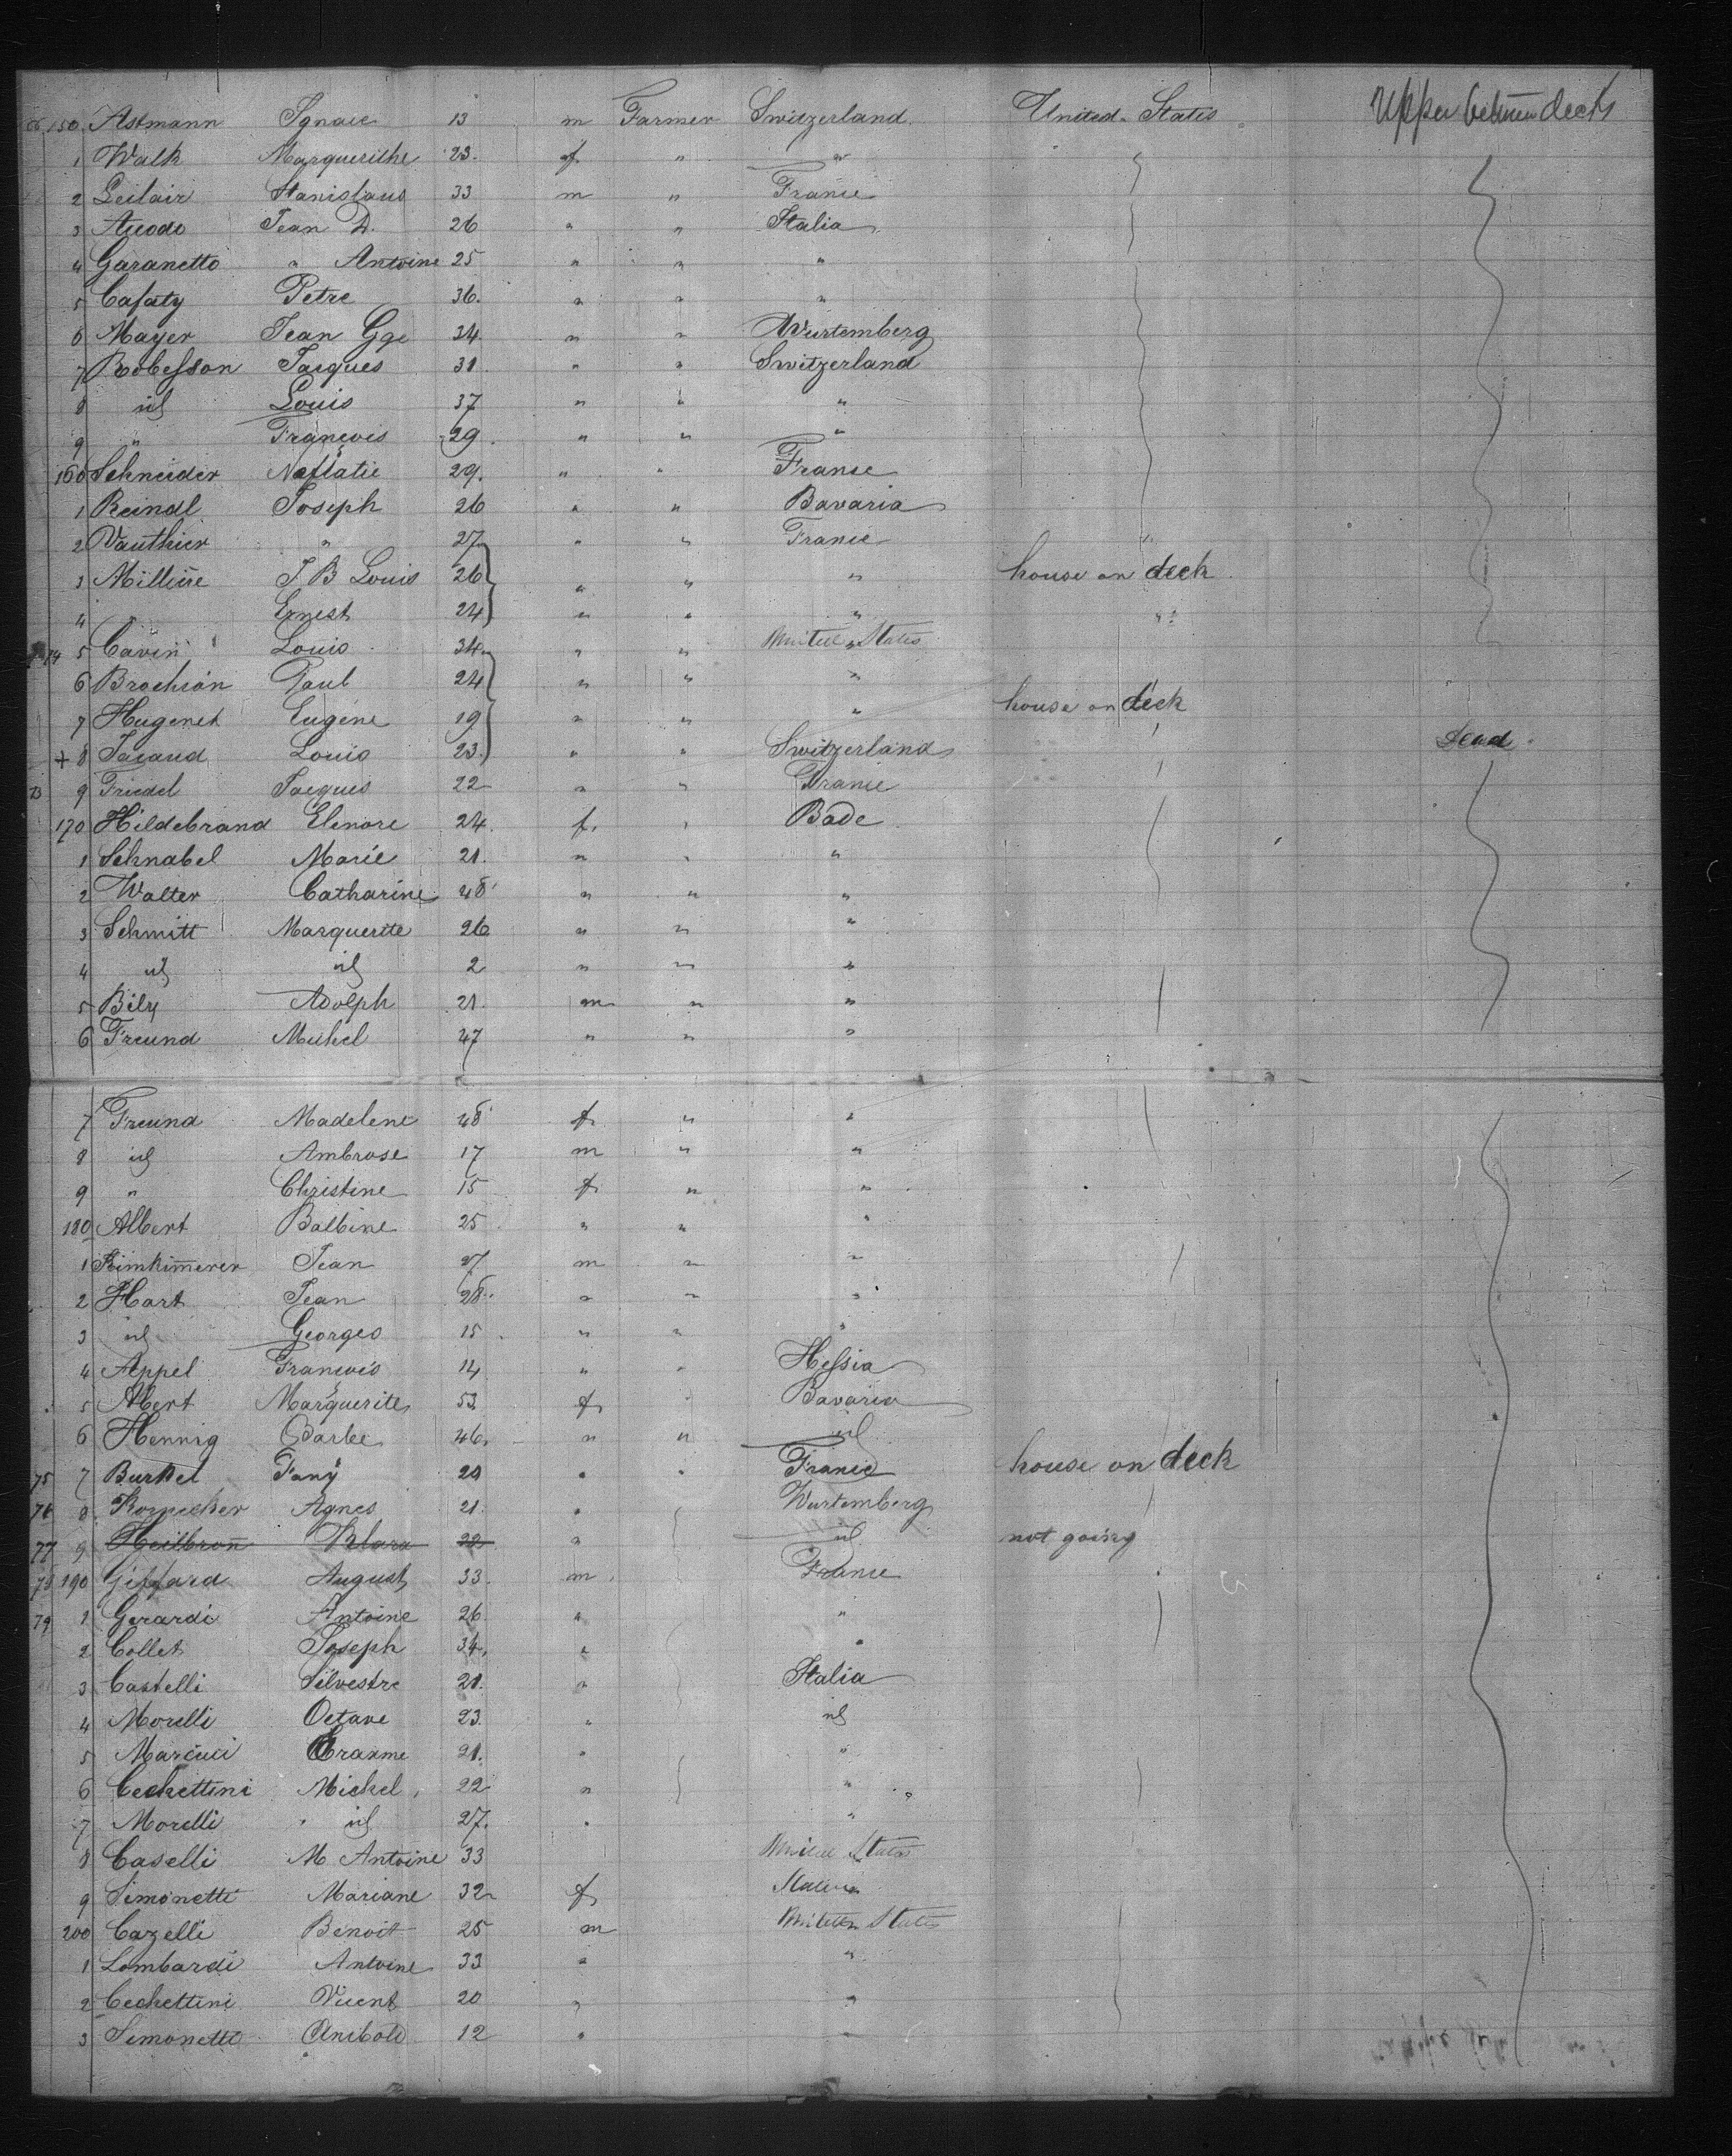 150 Astmann Ignace 13 m Farmer Switzerland United States Upper between decks
1 Walk Marguerithe 23. f " "
2 Leclair Stanislaus 33 m " France
3 Jean D. 26 " " Italia
4 Garanetto " Antoine 25 " " "
5 Casaty Petre 36. " " "
6 Mayer Jean Gge 34 " " Wurtemberg
7 Robesson Jacques 31 " " Switzerland
8 id Louis 37 " " "
9 " François 29 " " "
160 Schneider Naftatie 29. " " France
1 Reindl Joseph 26 " " Bavaria
2 Vauthier " 27 " " France "
3 Millière J B Louis 26 " " " house on deck
4 " Ernest 24 " " " "
74 5 Cavin Louis 34 " " United States
6 Brochion Paul 24 " " "
7 Hugenet Eugène 19 " " " house on deck
+ 8 Jacaud Louis 23. " " Switzerland Dead
73 9 Friedel Jacques 22 " " France
170 Hildebrand Elenore 24. f. " Bade
1 Schnabel Marie 21. " " "
2 Walter Catharine 48 " " "
3 Schmitt Marguerite 26 " " "
4 id id 2 " " "
5 Bily Adolph 21. m " "
6 Freund Michel 47 " " "
7 Freund Madelene 48 f " "
8 id Ambrose 17 m " "
9 " Christine 15 f " "
180 Albert Balbine 25 " " "
1 Rimkimerer Jean 27 m " "
2 Hart Jean 28 " " "
3 id Georges 15 " " "
4 Appel François 14 " " Hessia
5 Albert Marguerite 53 f " Bavaria
6 Hennig Barbe 46. " " id
75 7 Burkel Fany 20 " " France house on deck
76 8 Agnes 21. " Wurtemberg
77 9 Heilbronn Klara 22 " id not going
78 190 Giffard August 33. m France
79 1 Gerardi Antoine 26 " "
2 Collet Joseph 34 " "
3 Castelli Silvestre 21. " Italia
4 Morelli Octave 23. " id
5 Marcuci Erasme 21. " "
6 Cechettini Michel 22 " "
7 Morelli " id 27. " "
8 Caselli M Antoine 33 United States
9 Simonetti Mariane 32 f
200 Cazelli Benoit 25 m United States
1 Lombardi Antoine 33 " "
2 Cechettini Vicent 20 " "
3 Simonetti Anibold 12 " "